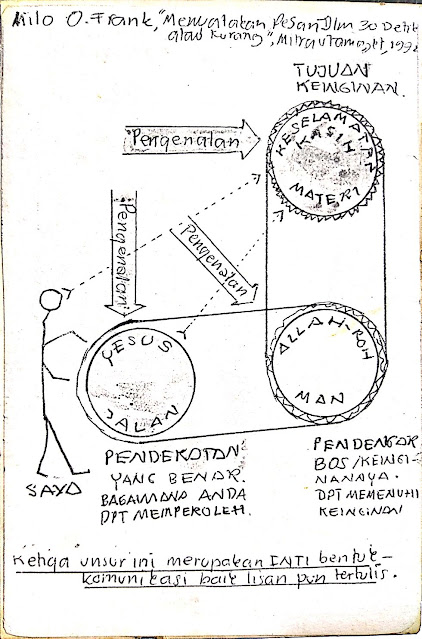 Milo O. Frank, "Menyatakan Pesan Dlm 30 Detik
atau Kurang", Mitrautama
TUJUAN
KEINGINAN.
KESELAMATAN
KASIH
MATERI
Pengenalan
Pengenalan
Pengenalan
YESUS
JALAN
ALLAH-ROH
MAN
SAYA
PENDEKATAN
YANG BENAR.
BAGAIMANA ANDA
DPT MEMPEROLEH.
PENDENGAR
BOS/KEINGI-
NANAYA.
DPT MEMENUHI
KEINGINAN
Ketiga unsur ini merupakan INTI bentuk-
komunikasi baik lisan pun tertulis.